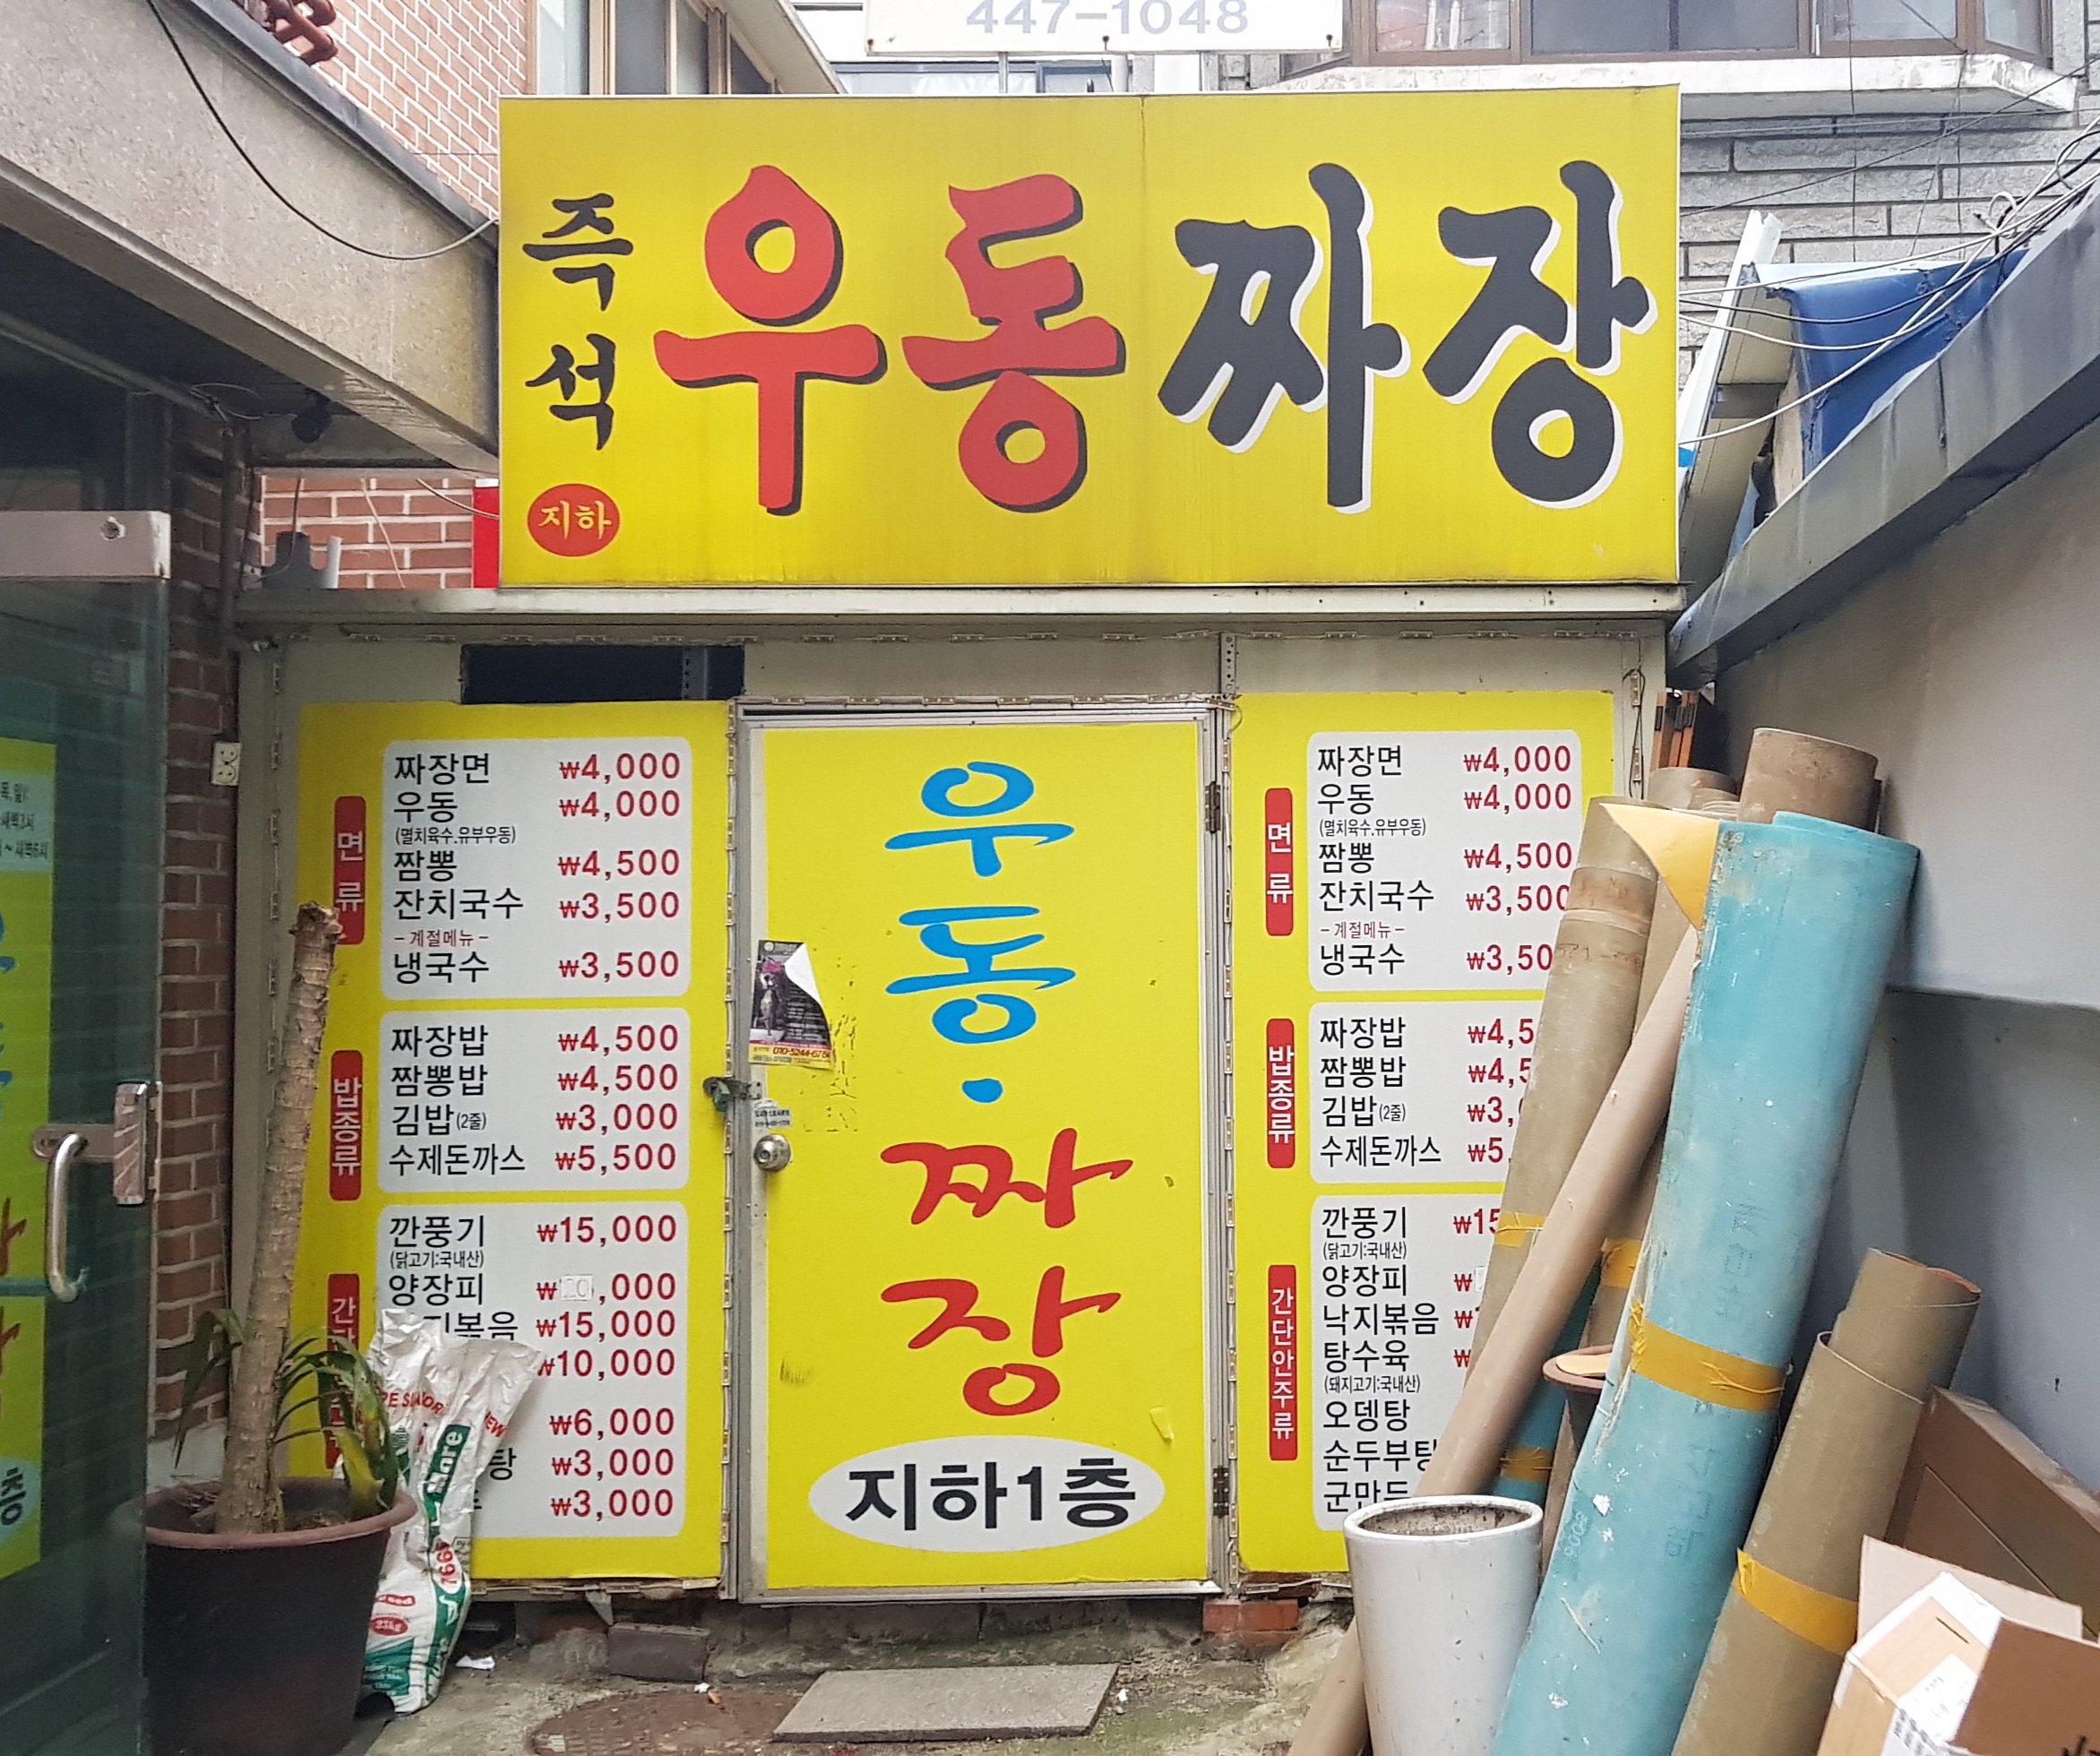 447-1048
즉석
우동짜장
지하
면류
짜장면 ₩4,000
우동 ₩4,000
(멸치육수.유부우동)
짬뽕 ₩4,500
잔치국수 ₩3,500
-계절메뉴-
냉국수 ₩3,500
밥종류
짜장밥 ₩4,500
짬뽕밥 ₩4,500
김밥(2줄) ₩3,000
수제돈까스 ₩5,500
깐풍기 ₩15,000
(닭고기:국내산)
양장피 ₩ ,000
₩15,000
₩10,000
₩6,000
탕 ₩3,000
₩3,000
우동·
짜장
지하1층
010-5244-676
면류
짜장면 ₩4,000
우동 ₩4,000
(멸치육수.유부우동)
짬뽕 ₩4,500
잔치국수 ₩3,500
-계절메뉴-
냉국수 ₩3,50
밥종류
짜장밥 ₩4,5
짬뽕밥 ₩4,5
김밥(2줄) ₩3,
수제돈까스 ₩5
간단안주류
깐풍기 ₩15
(닭고기:국내산)
양장피 ₩
낙지볶음 ₩
탕수육 ₩
(돼지고기:국내산)
오뎅탕
순두부탕
군만두